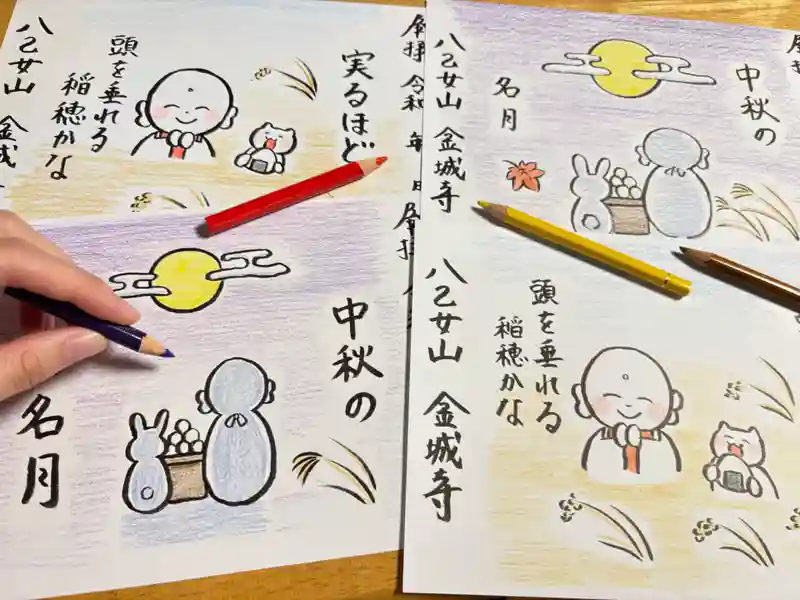 拝 令和 年
実るほど
頭を垂れる
稲穂かな
八乙女山 金城
中秋の
名月
中秋の
名月
八乙女山 金城寺
頭を垂れる
稲穂かな
八乙女山 金城寺